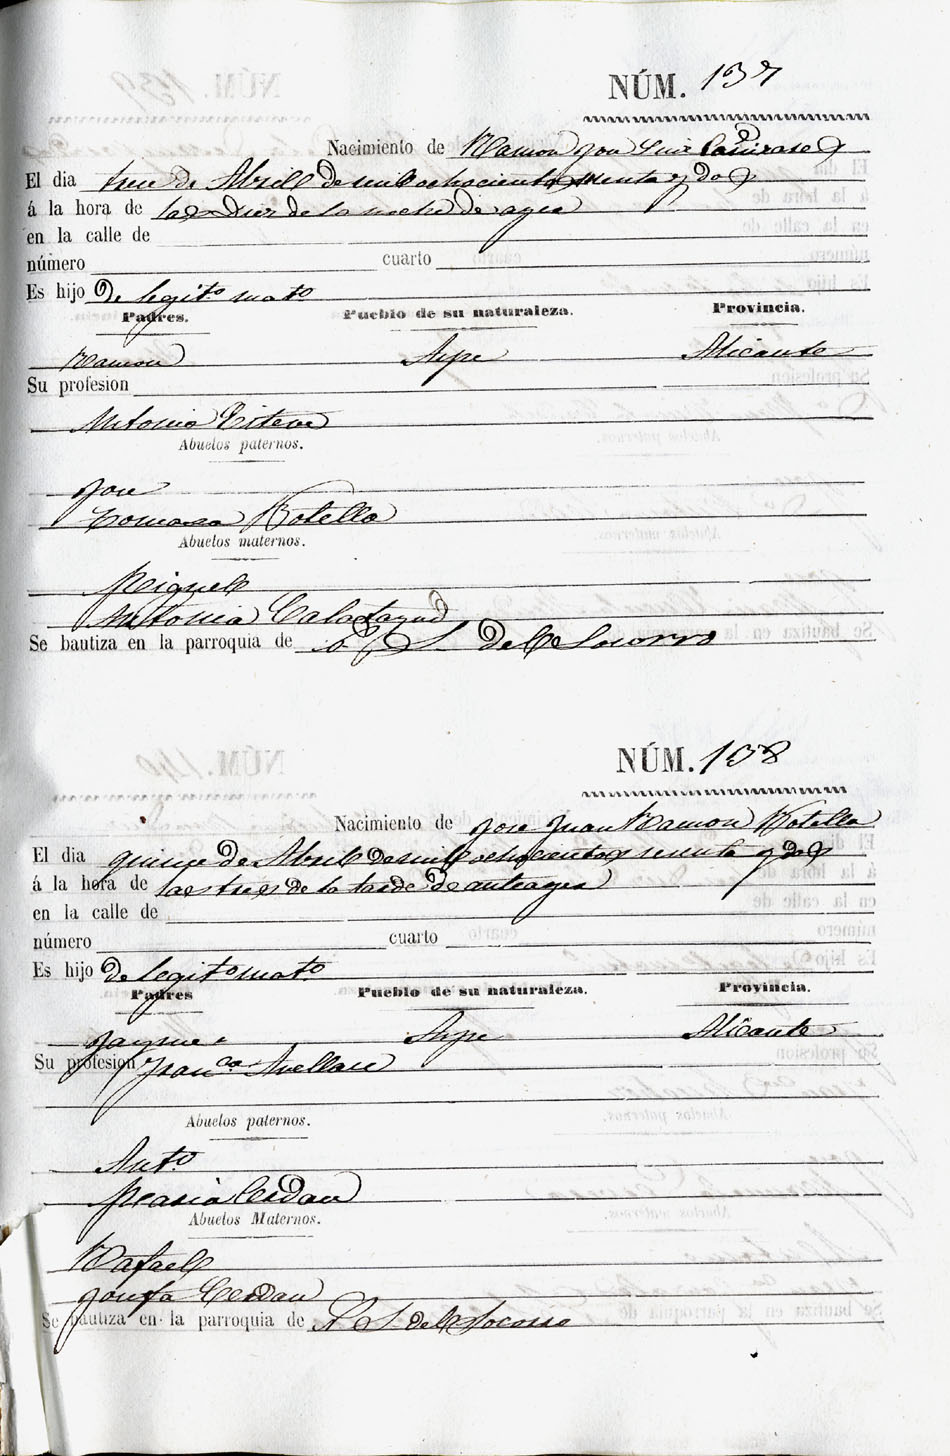 NÚM. 137
Nacimiento de Ramon José Luis Cañizares
El dia trece de Abrill de mil ochocientos sesenta y dos
á la hora de las Diez de la noche de ayer
en la calle de
número cuarto
Es hijo De legit.o mat.o
Padres. Pueblo de su naturaleza. Provincia.
Ramon Aspe Alicante
Su profesion
Antonia Esteve
Abuelos paternos.
Jose
Tomasa Botella
Abuelos maternos.
Miguell
Antonia Calatayud
Se bautiza en la parroquia de N. S. dell Socorro
NÚM. 138
Nacimiento de Jose Juan Ramon Botella
El dia quince de Abrill de mil ochocientos sesenta y dos
á la hora de las tres de la tarde de anteayer
en la calle de
número cuarto
Es hijo de legit.o mat.o
Padres Pueblo de su naturaleza. Provincia.
Jayme Aspe Alicante
Su profesion Fran.ca Avellan
Abuelos paternos.
Ant.o
Maria Cerdan
Abuelos Maternos.
Rafaell
Josefa Cerdan
Se bautiza en la parroquia de N. S. dell Socorro